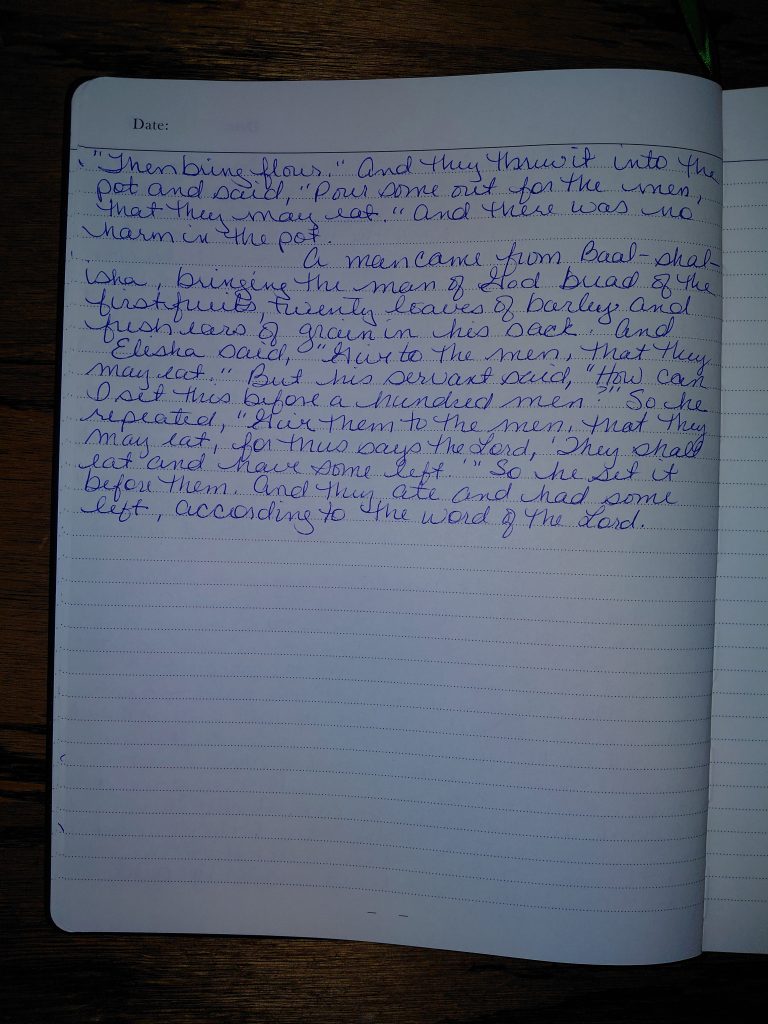 Date:
"Then bring flour." And they threw it into the
pot and said, "Pour some out for the men,
that they may eat." And there was no
harm in the pot.
A man came from Baal-shal-
isha, bringing the man of God bread of the
firstfruits, twenty loaves of barley and
fresh ears of grain in his sack. And
Elisha said, "Give to the men, that they
may eat." But his servant said, "How can
I set this before a hundred men?" So he
repeated, "Give them to the men, that they
may eat, for thus says the Lord, 'They shall
eat and have some left.'" So he set it
before them. And they ate and had some
left, according to the word of the Lord.